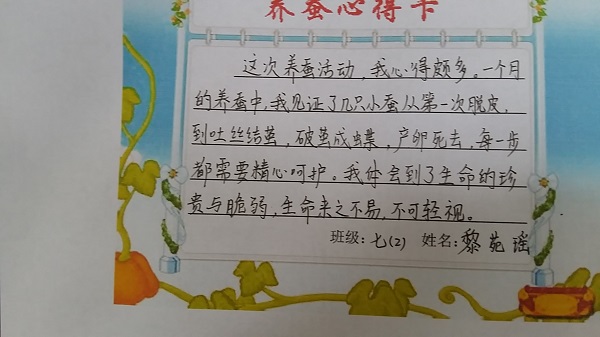 养蚕心得卡
这次养蚕活动，我心得颇多。一个月
的养蚕中，我见证了几只小蚕从第一次脱皮，
到吐丝结茧，破茧成蝶，产卵死去，每一步
都需要精心呵护。我体会到了生命的珍
贵与脆弱，生命来之不易，不可轻视。
班级：七（2） 姓名：黎苑谣